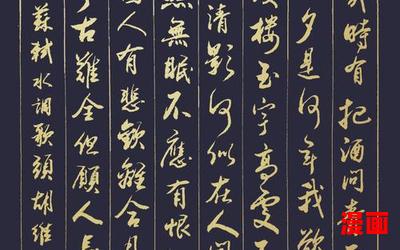 時有把酒問青
夕是何年我欲
樓玉宇高處不
清影何似在人間
無眠不應有恨
人有悲歡離合月
古難全但願人長
蘇軾水調歌頭胡維
漫画